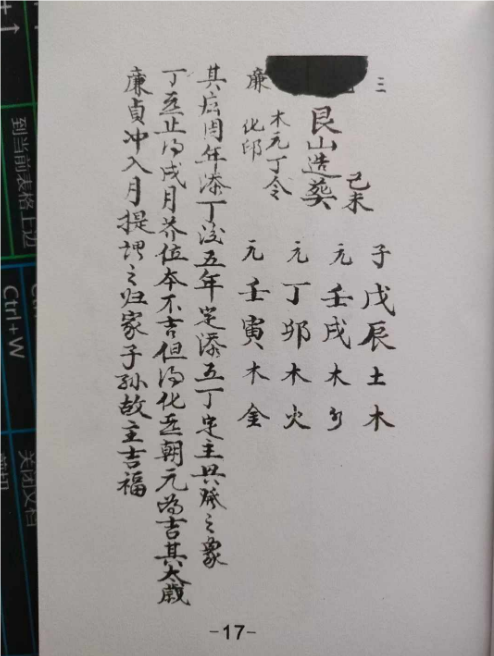 三
艮山造葬
己未
子戊辰土木
元壬戌木
元丁卯木火
元壬寅木金
木元丁令
廉化印
其后周年添丁后五年定添五丁定主兴隆之象
丁止得戌月养位本不吉但得化朝元為吉其太歲
廉貞冲入月提謂之归家子孙故主吉福
-17-
到当前表格上边
Ctrl+W
关闭文档